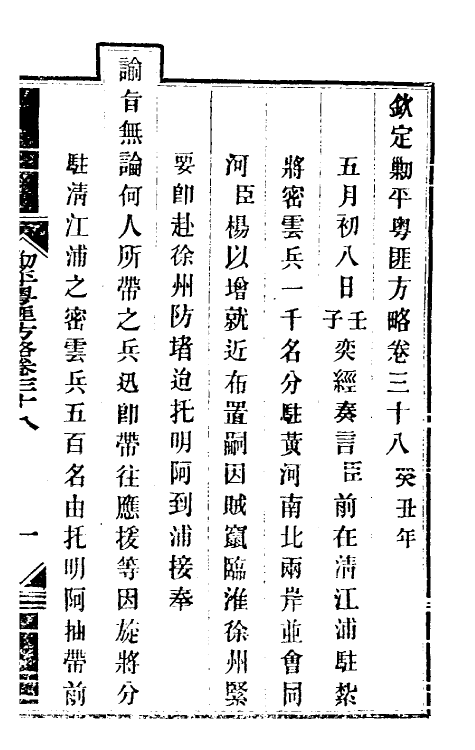 欽定勦平粵匪方略卷三十八 癸丑年
五月初八日壬子奕經奏言臣前在清江浦駐紮
將密雲兵一千名分駐黃河南北兩岸並會同
河臣楊以增就近布置嗣因賊竄臨淮徐州緊
要卽赴徐州防堵迨托明阿到浦接奉
諭旨無論何人所帶之兵迅卽帶往應援等因旋將分
駐清江浦之密雲兵五百名由托明阿抽帶前
勦平粵匪方略卷三十八
一